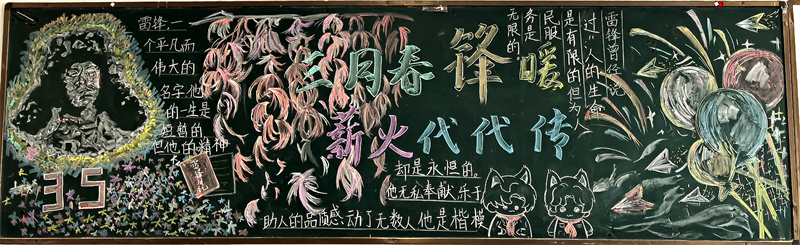 三月春锋暖
薪火代代传
雷锋,一
个平凡而
伟大的
名字他
的一生是
短暂的
但他的精神
却是永恒的。
他无私奉献,乐于
助人的品质感动了无数人他是楷模
35
雷锋曾经说
过“人的生命
是有限的但为人
民服
务是
无限的